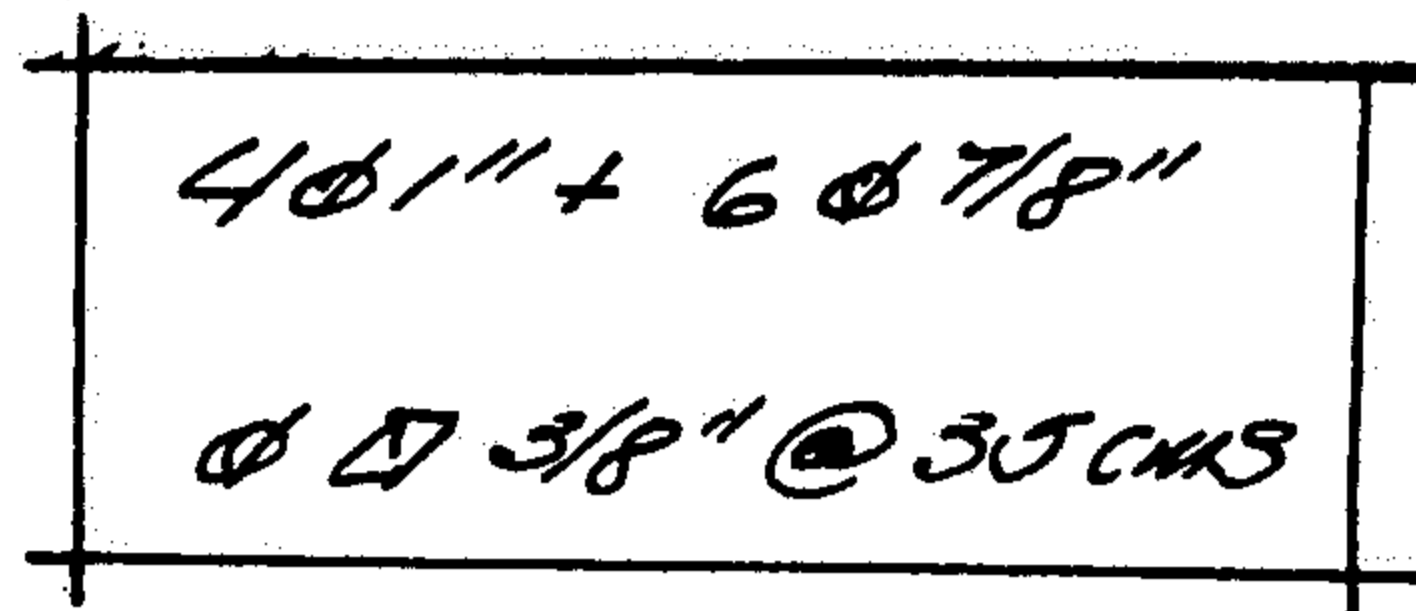 4Ø1"+ 6Ø7/8"
Ø □ 3/8" @ 35 CMS